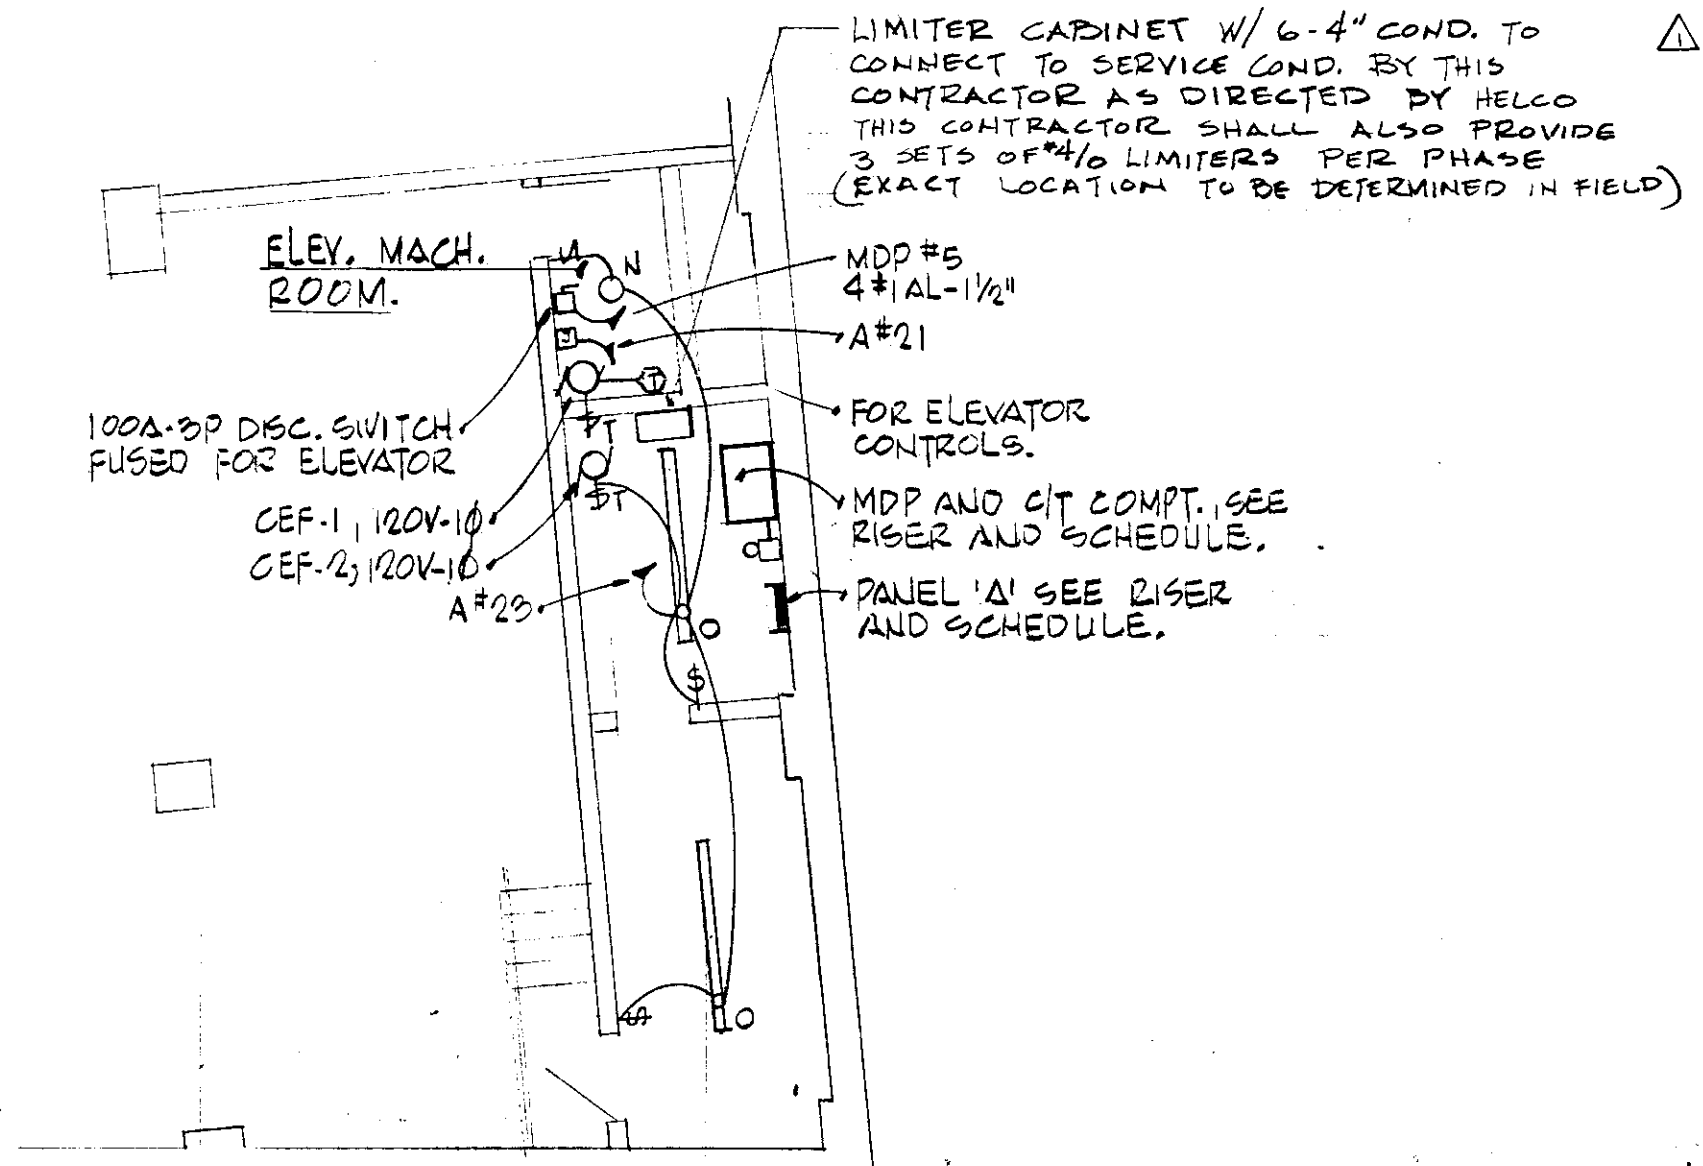 LIMITER CABINET W/ 6-4" COND. TO
CONNECT TO SERVICE COND. BY THIS
CONTRACTOR AS DIRECTED BY HELCO
THIS CONTRACTOR SHALL ALSO PROVIDE
3 SETS OF #4/0 LIMITERS PER PHASE
(EXACT LOCATION TO BE DETERMINED IN FIELD)
1
ELEV. MACH.
ROOM.
N
MDP #5
4#1 AL-1½"
A#21
J
T
100A-3P DISC. SWITCH
FUSED FOR ELEVATOR
FOR ELEVATOR
CONTROLS.
PT
$T
CEF-1, 120V-1Ø
CEF-2, 120V-1Ø
A#23
MDP AND C/T COMPT., SEE
RISER AND SCHEDULE.
PANEL 'A' SEE RISER
AND SCHEDULE.
O
$
$
O